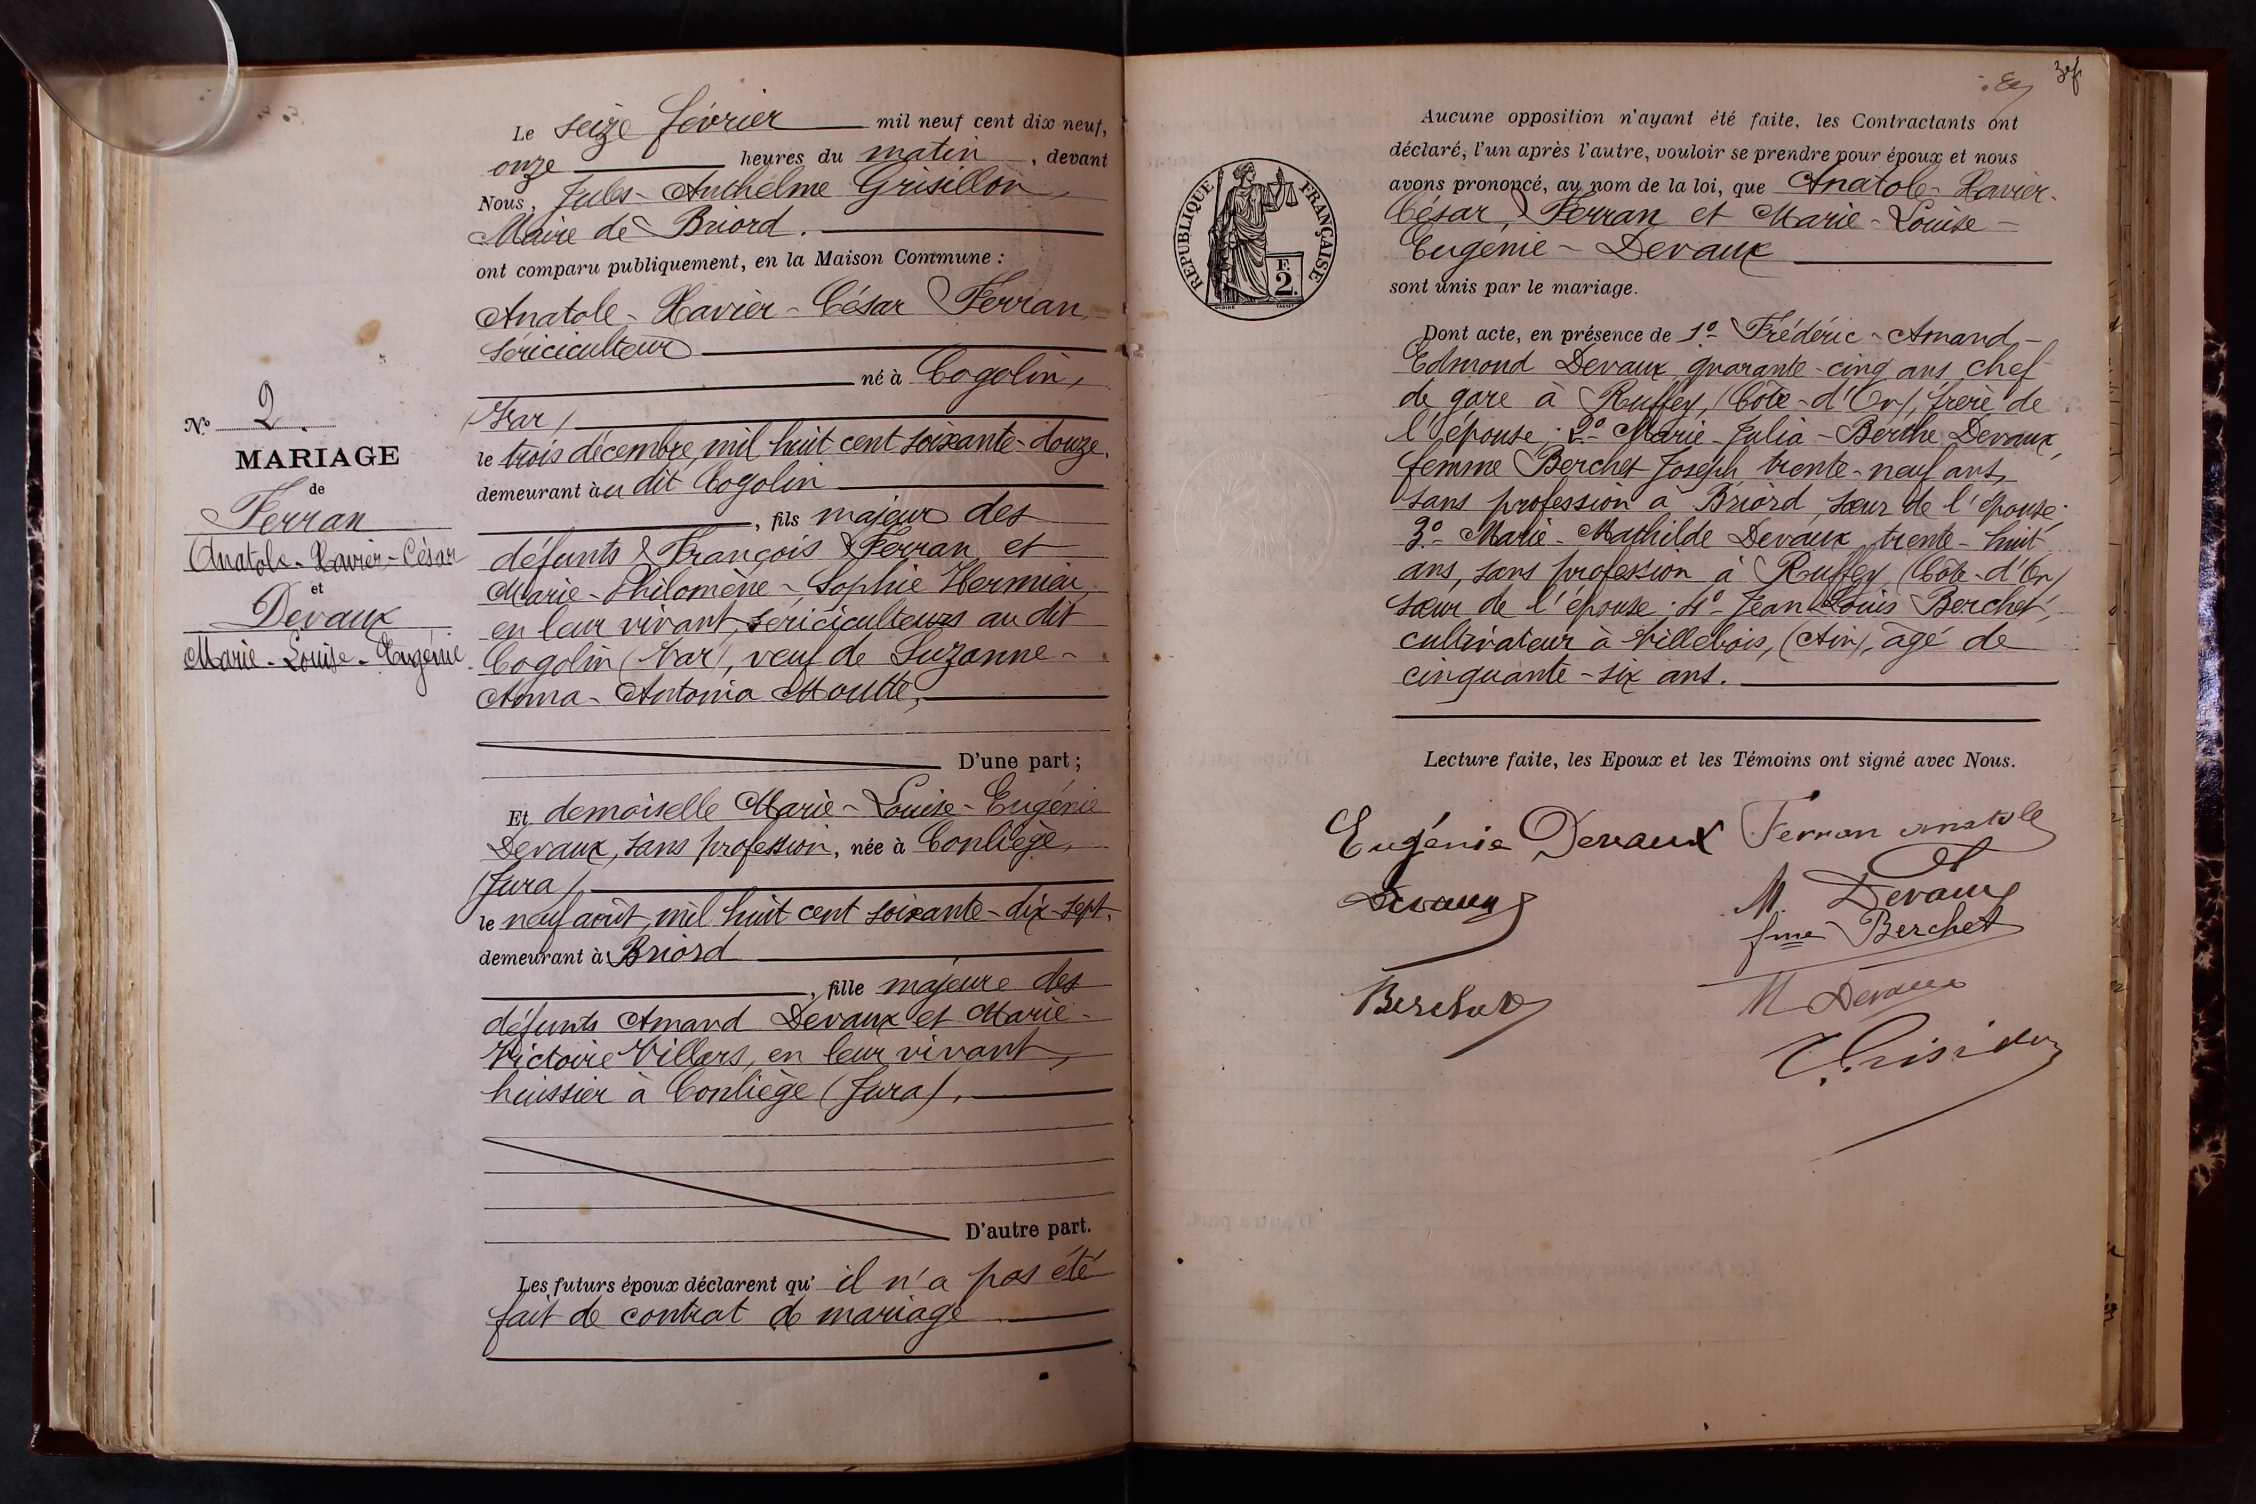 N.° 2.
MARIAGE
de
Ferran
Anatole-Xavier-César
et
Devaux
Marie-Louise-Eugénie.
Le seize février mil neuf cent dix neuf,
onze heures du matin, devant
Nous, Jules-Anthelme Grisillon,
Maire de Briord.
ont comparu publiquement, en la Maison Commune :
Anatole-Xavier-César Ferran,
sériciculteur
né à Cogolin,
(Var)
le trois décembre, mil huit cent soixante-douze,
demeurant à au dit Cogolin
, fils majeur des
défunts François Ferran et
Marie-Philomène-Sophie
en leur vivant, sériciculteurs au dit
Cogolin (Var), veuf de Suzanne-
Anna-Antonia Moutte,
D'une part ;
Et demoiselle Marie-Louise-Eugénie
Devaux, sans profession, née à Conliège,
(Jura)
le neuf août, mil huit cent soixante-dix-sept,
demeurant à Briord
, fille majeure des
défunts Amand Devaux et Marie-
Victoire Villars, en leur vivant,
huissier à Conliège (Jura),
D'autre part.
Les futurs époux déclarent qu' il n'a pas été
fait de contrat de mariage
RÉPUBLIQUE FRANÇAISE
F.
2.
Aucune opposition n'ayant été faite, les Contractants ont
déclaré, l'un après l'autre, vouloir se prendre pour époux et nous
avons prononcé, au nom de la loi, que Anatole-Xavier-
César, Ferran et Marie-Louise-
Eugénie-Devaux
sont unis par le mariage.
Dont acte, en présence de 1.° Frédéric-Amand-
Edmond Devaux quarante-cinq ans, chef
de gare à Ruffey, (Côte-d'Or), frère de
l'épouse ; 2.° Marie-Julia-Berthe Devaux,
femme Berchet Joseph trente-neuf ans,
sans profession à Briord, sœur de l'épouse ;
3.° Marie-Mathilde Devaux trente-huit
ans, sans profession à Ruffey (Côte-d'Or)
sœur de l'épouse ; 4.° Jean Louis Berchet,
cultivateur à Villebois, (Ain), âgé de
cinquante-six ans.
Lecture faite, les Epoux et les Témoins ont signé avec Nous.
Eugénie Devaux Ferran anatole
Devaux
M. Devaux
fme Berchet
Berchet
M Devaux